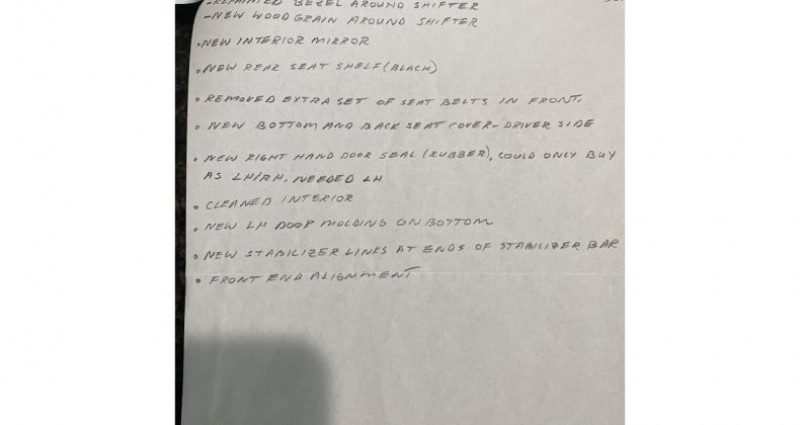 -REPAINTED BEZEL AROUND SHIFTER
-NEW WOODGRAIN AROUND SHIFTER
•NEW INTERIOR MIRROR
•NEW REAR SEAT SHELF (BLACK)
• REMOVED EXTRA SET OF SEAT BELTS IN FRONT.
• NEW BOTTOM AND BACK SEAT COVER-DRIVER SIDE
• NEW RIGHT HAND DOOR SEAL (RUBBER), COULD ONLY BUY
AS LH/RH, NEEDED LH
• CLEANED INTERIOR
• NEW LH DOOR MOLDING ON BOTTOM
• NEW STABILIZER LINKS AT ENDS OF STABILIZER BAR
• FRONT END ALIGNMENT